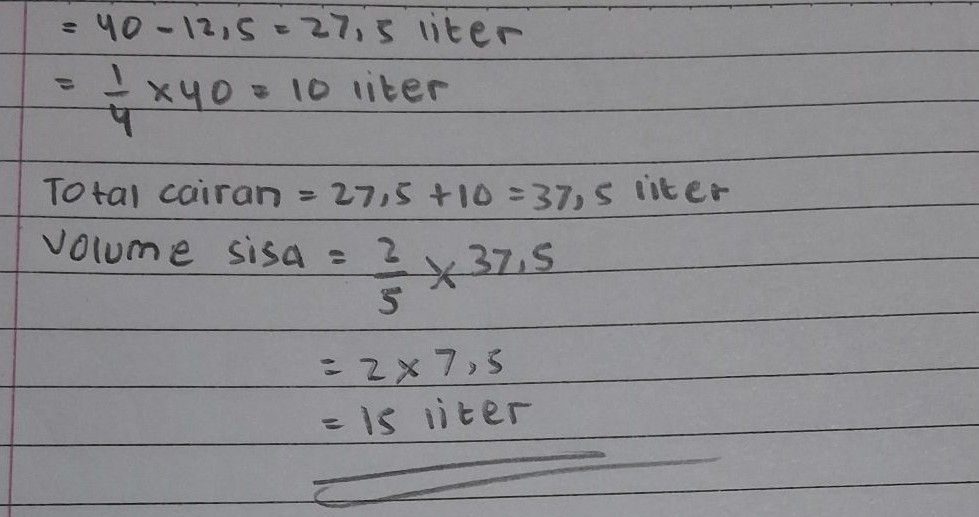 = 40 - 12,5 = 27,5 liter
= 1/4 × 40 = 10 liter
Total cairan = 27,5 + 10 = 37,5 liter
Volume sisa = 2/5 × 37,5
= 2 × 7,5
= 15 liter